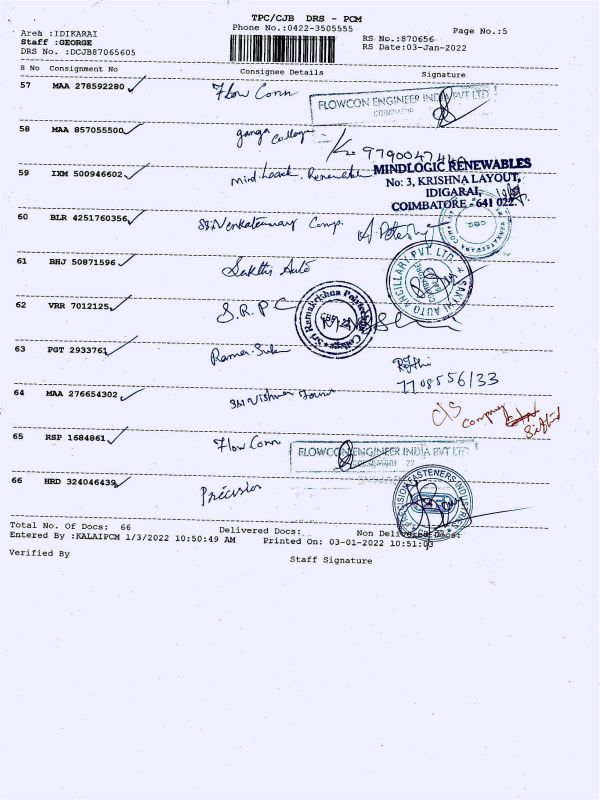 TPC/CJB DRS - PCM
Phone No.:0422-3505555
Page No.:5
Area :IDIKARAI
Staff :GEORGE
DRS No. :DCJB87065605
RS No.:870656
RS Date:03-Jan-2022
S No Consignment No Consignee Details Signature
57 MAA 278592280 Flow Conn
FLOWCON ENGINEER INDIA PVT LTD
58 MAA 857055500 ganga College
9790047440
59 IXM 500946602
MINDLOGIC RENEWABLES
No: 3, KRISHNA LAYOUT,
IDIGARAI,
COIMBATORE - 641 022.
60 BLR 4251760356 Sri Venkateswara Comp.
61 BHJ 50871596 Sakthi Auto
SAKTHI AUTO ANCILLARY PVT. LTD.
62 VRR 7012125 S.R.P.C
Sri Ramakrishna Polytechnic College
63 PGT 2933761
7708556133
64 MAA 276654302 Sri Vishnu
C/S Company
65 RSP 1684861 Flow Conn
FLOWCON ENGINEER INDIA PVT LTD
66 HRD 324046439 Precision
PRECISION FASTENERS INDUSTRIES
Total No. Of Docs: 66 Delivered Docs: Non Delivered Docs:
Entered By :KALAIPCM 1/3/2022 10:50:49 AM Printed On: 03-01-2022 10:51:03
Verified By Staff Signature